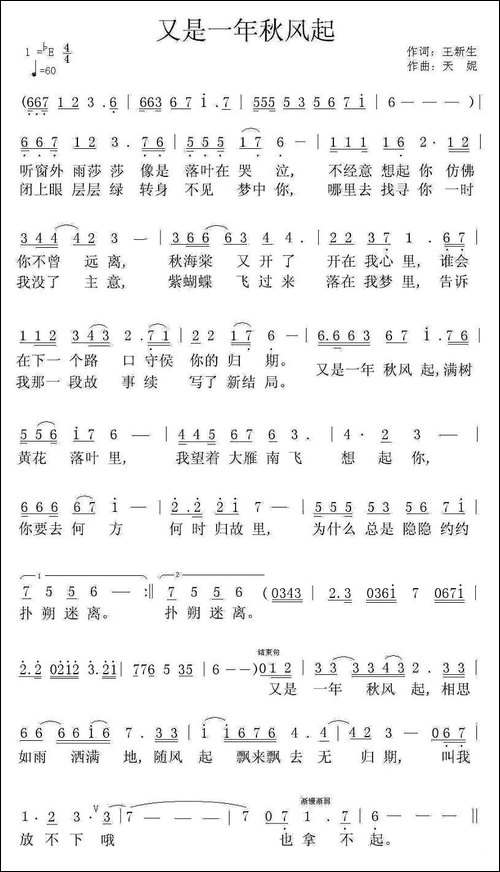 又是一年秋风起
1 =♭E 4/4
作词：王新生
♩=60
作曲：天 妮
(667 1 2 3 . 6 | 663 6 7 i . 7 | 555 5 3 5 6 7 i | 6 — — — )|
6 6 7 1 2 3 . 7 6 | 5 5 5 1 7 6 — | 1 1 1 1 6 2 · 2 1 |
听窗外 雨莎莎 像是 落叶在 哭 泣， 不经意 想起 你 仿佛
闭上眼 层层绿 转身 不见 梦中 你， 哪里去 找寻 你 一时
3 4 4 4 2 3 — | 3 6 6 6 3 4 4 . | 2 2 2 3 1 . 6 7 |
你不曾 远 离， 秋海棠 又 开 了 开在 我心 里，谁会
我没了 主 意， 紫蝴蝶 飞 过 来 落在 我梦 里，告诉
1 1 2 3 4 3 2 . 7 1 | 2 2 1 7 6 — | 6.6 6 3 6 7 i . 7 6 |
在下一 个路 口 守侯 你的 归 期。
又是一年 秋风 起,满树
我那一 段故 事 续 写了 新结 局。
5 5 6 i 7 6 — | 4 4 5 6 7 6 3 . | 4 · 2 3 — |
黄花 落叶 里， 我望着 大雁 南 飞 想 起 你，
6 6 6 6 7 i — | 2 . 2 2 i 7 — | 5 5 5 3 5 5 6 7 i |
你要去 何 方 何 时归故 里， 为什么 总是 隐隐 约约
1 2
7 5 5 6 — :‖ 7 5 5 6 — (0343 | 2.3 036i 7 067i |
扑 朔 迷 离。 扑 朔 迷 离。
结束句
2.2 02i2 3.2i | 776 5 35 | 6 — —) 0 1 2 | 3 3 3 3 4 3 2 . 3 3 |
又是 一年 秋风 起, 相思
如雨 洒满 地,随风 起 飘来飘去 无 归期, 叫我
渐慢渐弱
放 不 下 哦 也 拿 不 起。